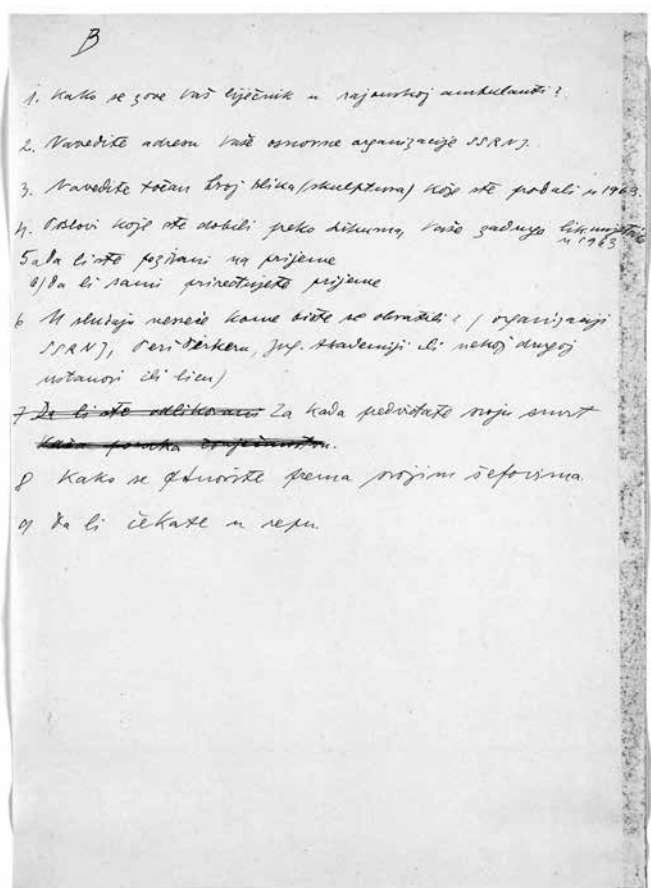 B
1. Kako se zove Vaš liječnik u rajonskoj ambulanti?
2. Navedite adresu Vaše osnovne organizacije SSRNJ.
3. Navedite točan broj slika (skulptura) koje ste prodali u 1963.
4. Poslovi koje ste dobili preko Vaše zadnje
u 1963
5 a Da li ste pozivani na prijeme
b) da li sami priređujete prijeme
6 U slučaju nesreće kome biste se obratili? (organizaciji
SSRNJ, Peri Jug. Akademiji ili nekoj drugoj
ustanovi ili licu)
7 Da li ste odlikovani Za kada predviđate svoju smrt
Vaša poruka čovječanstvu.
8 Kako se odnosite prema svojim šefovima.
9 Da li čekate u repu.